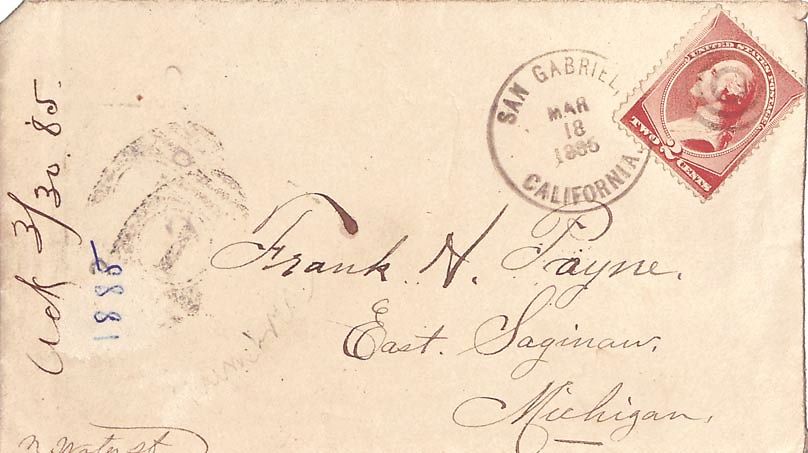 SAN GABRIEL,
MAR
18
1885
CALIFORNIA.
UNITED STATES POSTAGE
TWO 2 CENTS
Ack 3/30.85.
1
Frank H. Payne.
East. Saginaw.
Michigan.
N. Water St